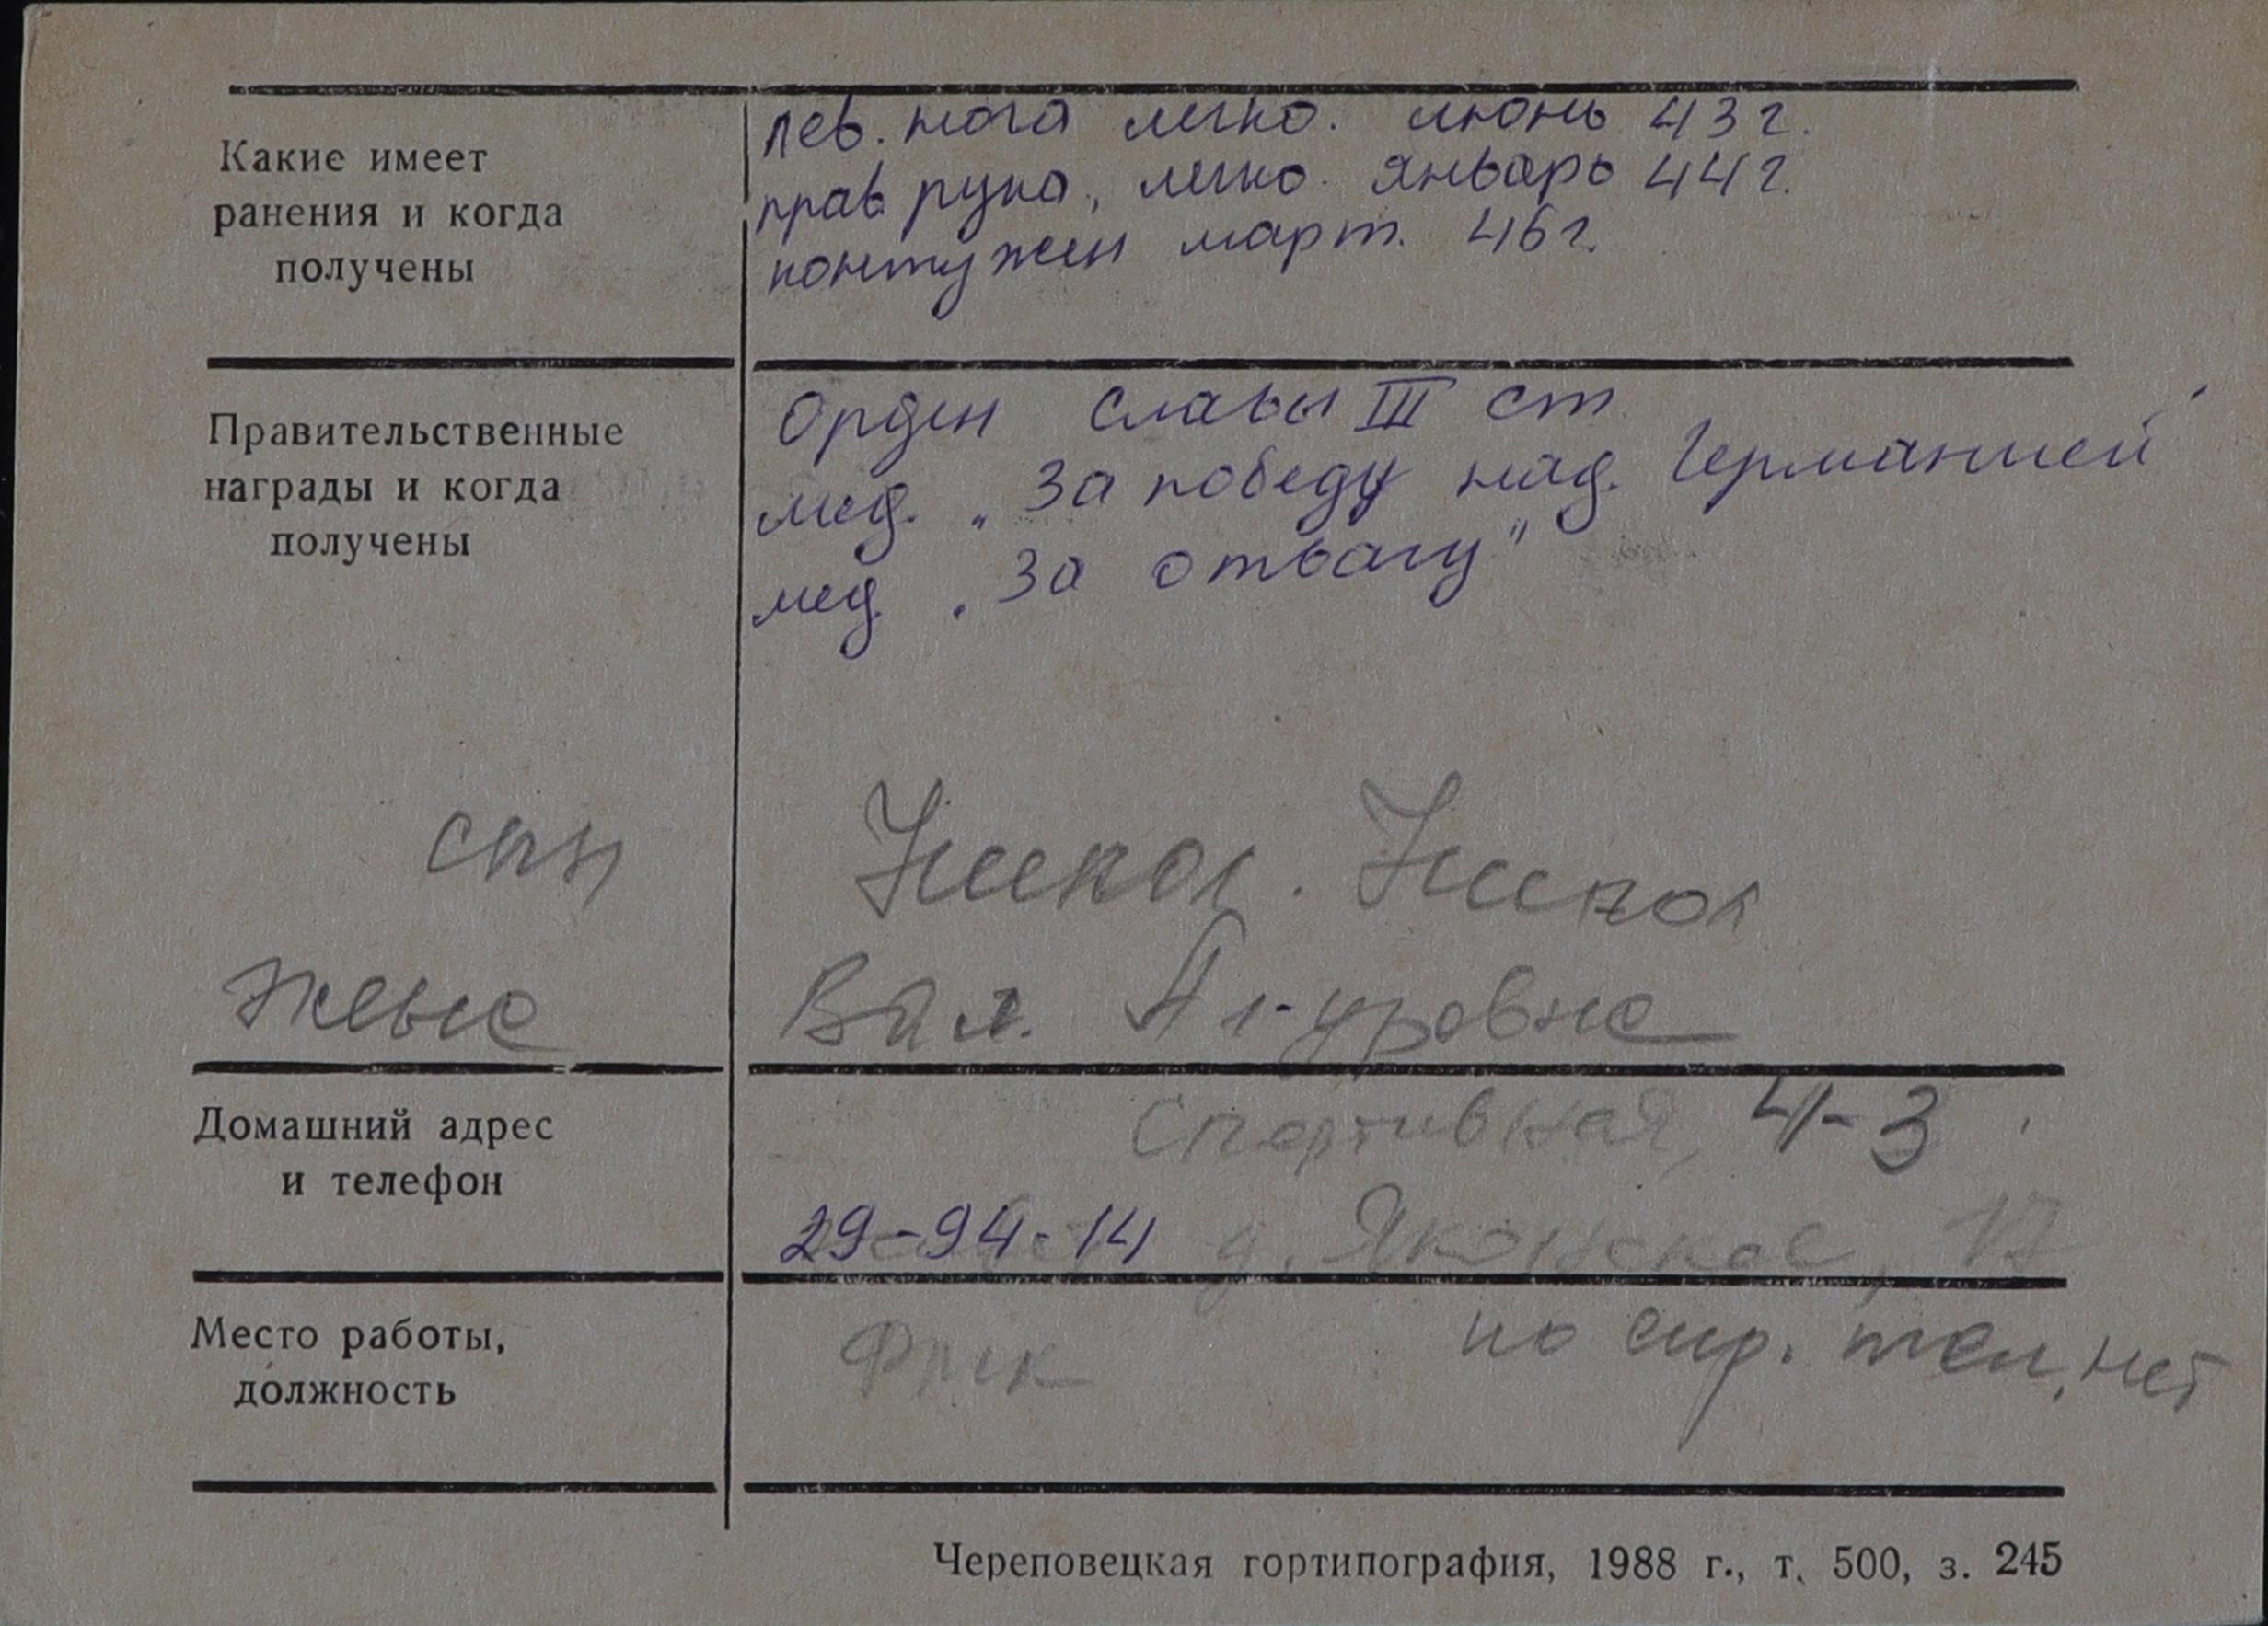 Какие имеет
ранения и когда
получены
лев. нога легко. июнь 43 г.
прав рука, легко. январь 44 г.
контужен март. 46 г.
Правительственные
награды и когда
получены
Орден Славы III ст.
мед. „За победу над. Германией"
мед. „За отвагу"
сын Никол. Никол
жена Вал. Ал-дровна
Домашний адрес
и телефон
Спортивная, 4-3
29-94-14 д. 17
Место работы,
должность
по спр. тел. нет
Череповецкая гортипография, 1988 г., т. 500, з. 245